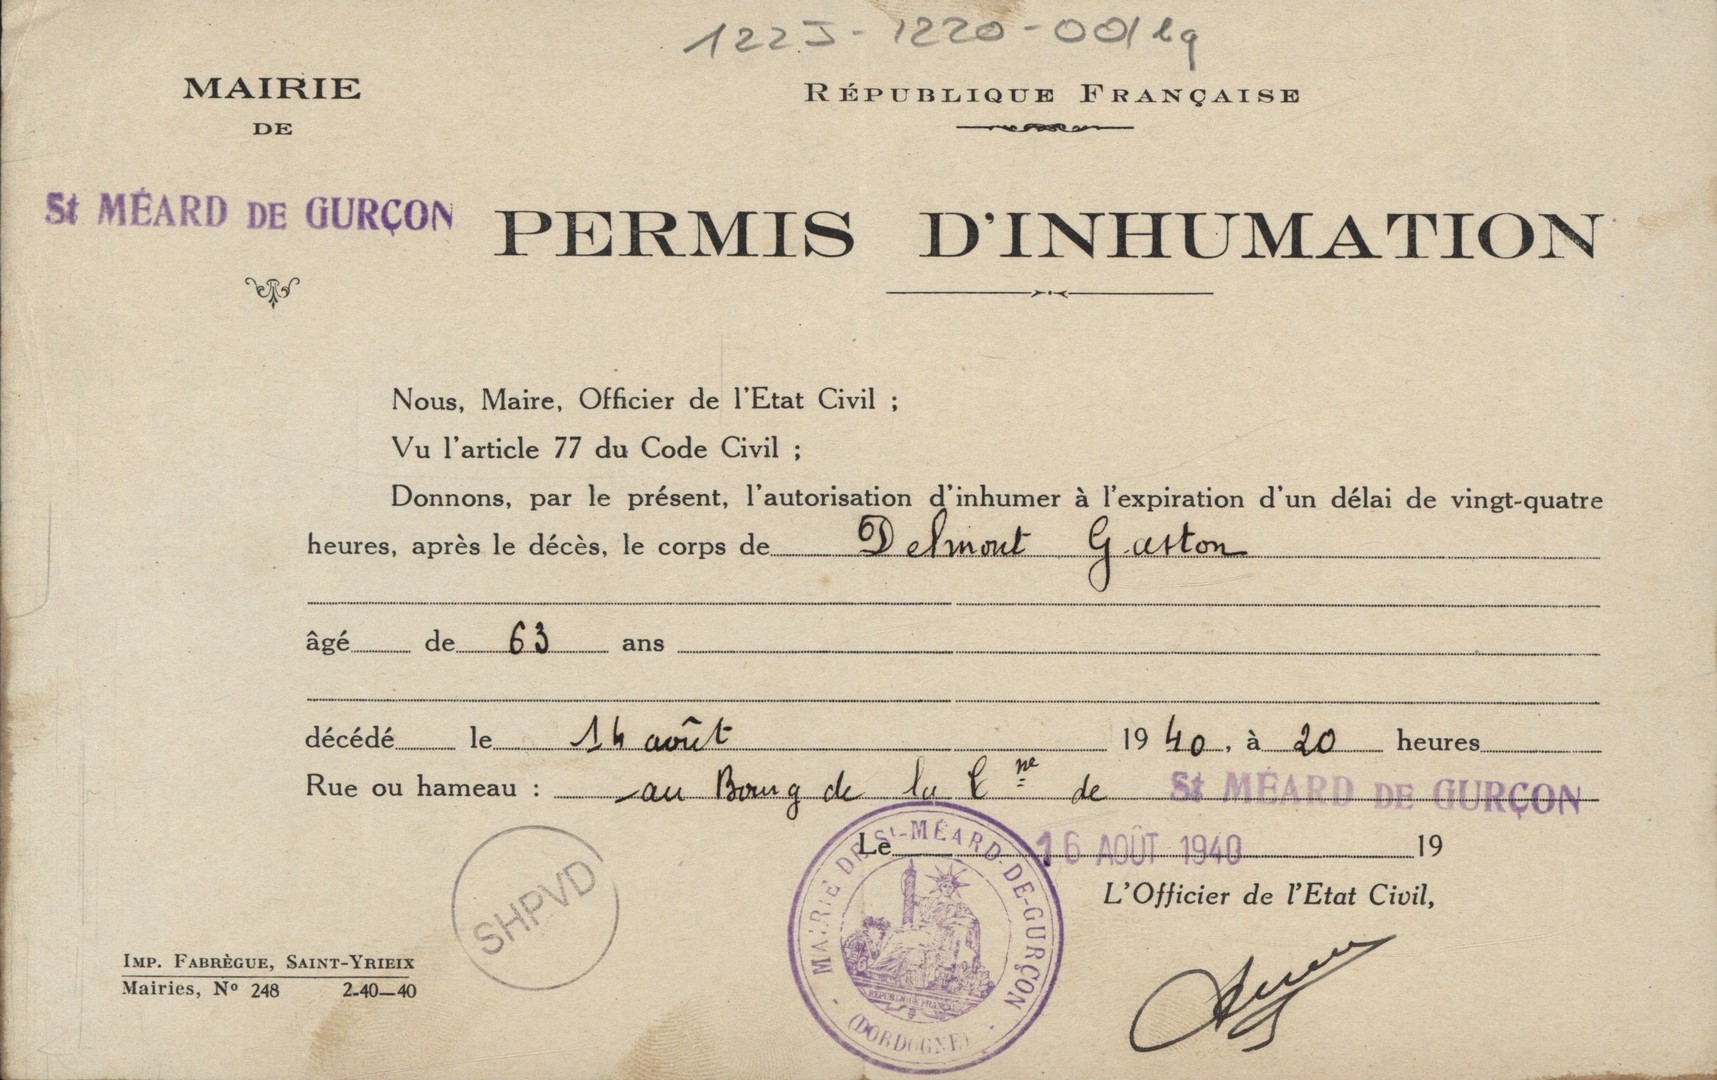 122J-1220-001 lg
MAIRIE
DE
St MÉARD DE GURÇON
RÉPUBLIQUE FRANÇAISE
PERMIS D'INHUMATION
Nous, Maire, Officier de l'Etat Civil ;
Vu l'article 77 du Code Civil ;
Donnons, par le présent, l'autorisation d'inhumer à l'expiration d'un délai de vingt-quatre
heures, après le décès, le corps de Delmont Gaston
âgé de 63 ans
décédé le 14 août 1940, à 20 heures
Rue ou hameau : au Bourg de la Cne de St MÉARD DE GURÇON
Le 16 AOÛT 1940 19
L'Officier de l'Etat Civil,
SHPVD
MAIRIE DE St-MÉARD-DE-GURÇON
RÉPUBLIQUE FRANÇAISE
(DORDOGNE)
IMP. FABRÈGUE, SAINT-YRIEIX
Mairies, No 248 2-40—40